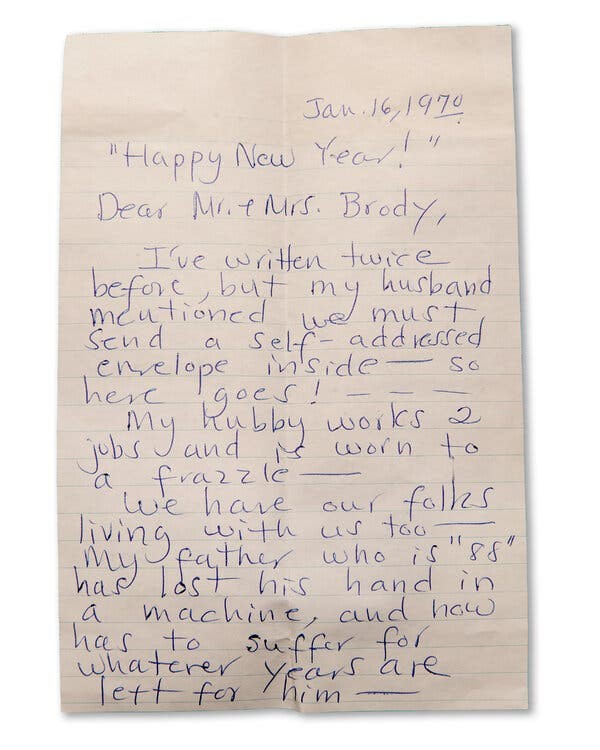 Jan. 16, 1970
"Happy New Year!"
Dear Mr. + Mrs. Brody,
I've written twice
before, but my husband
mentioned we must
send a self-addressed
envelope inside — so
here goes! — — —
My hubby works 2
jobs and is worn to
a frazzle —
We have our folks
living with us too —
My father who is "88"
has lost his hand in
a machine, and now
has to suffer for
whatever years are
left for him —